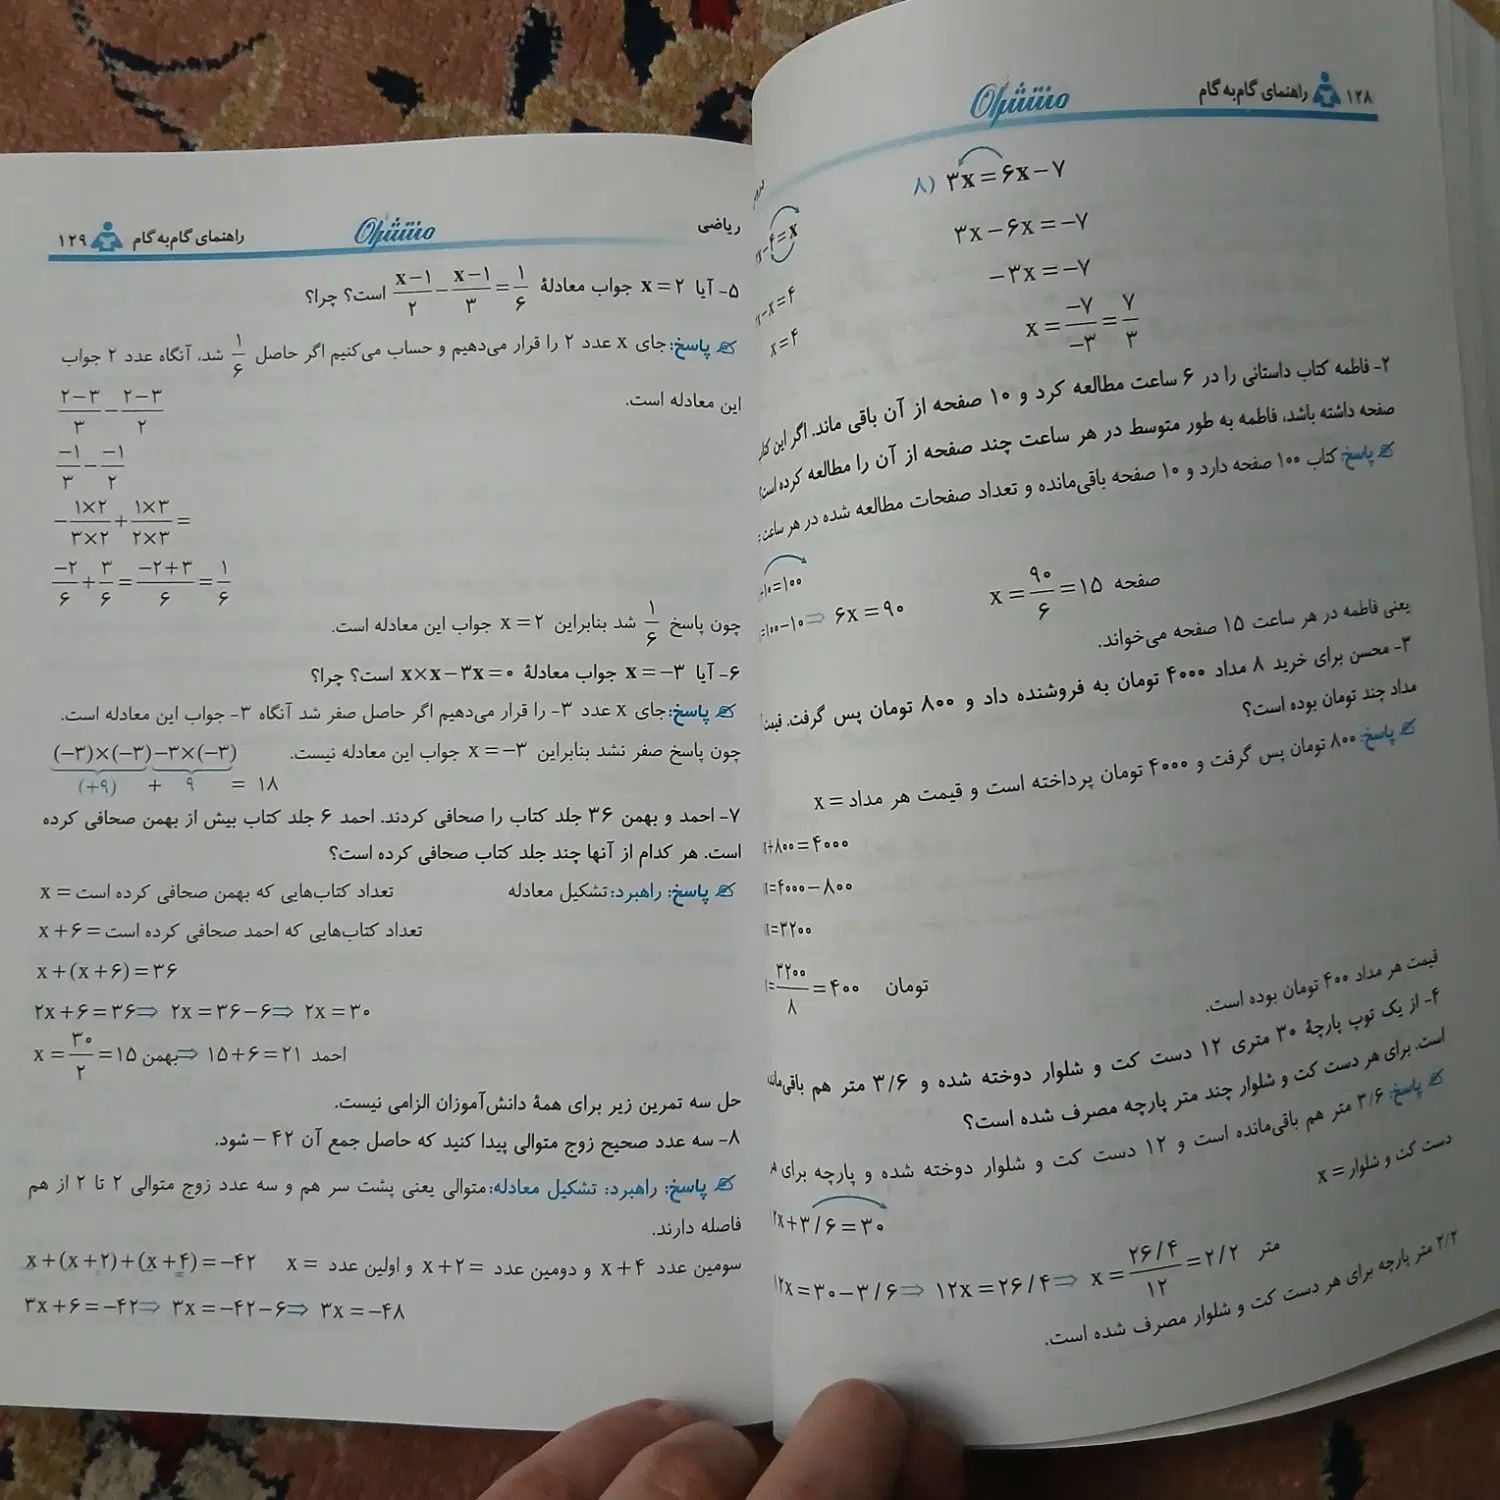 ۱۲۸ راهنمای گام‌به‌گام منتشران
۸) ۳x=۶x-۷
۳x-۶x=-۷
-۳x=-۷
x=\frac{-۷}{-۳}=\frac{۷}{۳}
-۴=x
-x=۴
x=۴
۲- فاطمه کتاب داستانی را در ۶ ساعت مطالعه کرد و ۱۰ صفحه از آن باقی ماند. اگر این
صفحه داشته باشد، فاطمه به طور متوسط در هر ساعت چند صفحه از آن را مطالعه کرده است
پاسخ: کتاب ۱۰۰ صفحه دارد و ۱۰ صفحه باقی‌مانده و تعداد صفحات مطالعه شده در هر ساعت
۱۰=۱۰۰
=۱۰۰-۱۰⇒ ۶x=۹۰ x=\frac{۹۰}{۶}=۱۵ صفحه
یعنی فاطمه در هر ساعت ۱۵ صفحه می‌خواند.
۳- محسن برای خرید ۸ مداد ۴۰۰۰ تومان به فروشنده داد و ۸۰۰ تومان پس گرفت. قیمت
مداد چند تومان بوده است؟
پاسخ: ۸۰۰ تومان پس گرفت و ۴۰۰۰ تومان پرداخته است و قیمت هر مداد = x
+۸۰۰=۴۰۰۰
=۴۰۰۰-۸۰۰
=۳۲۰۰
=\frac{۳۲۰۰}{۸}=۴۰۰ تومان
قیمت هر مداد ۴۰۰ تومان بوده است.
۴- از یک توپ پارچهٔ ۳۰ متری ۱۲ دست کت و شلوار دوخته شده و ۳/۶ متر هم باقی‌مانده
است. برای هر دست کت و شلوار چند متر پارچه مصرف شده است؟
پاسخ: ۳/۶ متر هم باقی‌مانده است و ۱۲ دست کت و شلوار دوخته شده و پارچه برای
دست کت و شلوار = x
۲x+۳/۶=۳۰
۱۲x=۳۰-۳/۶⇒ ۱۲x=۲۶/۴⇒ x=\frac{۲۶/۴}{۱۲}=۲/۲ متر
۲/۲ متر پارچه برای هر دست کت و شلوار مصرف شده است.
ریاضی منتشران راهنمای گام‌به‌گام ۱۲۹
۵- آیا x=۲ جواب معادلهٔ \frac{x-۱}{۲}-\frac{x-۱}{۳}=\frac{۱}{۶} است؟ چرا؟
پاسخ: جای x عدد ۲ را قرار می‌دهیم و حساب می‌کنیم اگر حاصل \frac{۱}{۶} شد، آنگاه عدد ۲ جواب
این معادله است.
\frac{۲-۳}{۳}-\frac{۲-۳}{۲}
\frac{-۱}{۳}-\frac{-۱}{۲}
-\frac{۱×۲}{۳×۲}+\frac{۱×۳}{۲×۳}=
\frac{-۲}{۶}+\frac{۳}{۶}=\frac{-۲+۳}{۶}=\frac{۱}{۶}
چون پاسخ \frac{۱}{۶} شد بنابراین x=۲ جواب این معادله است.
۶- آیا x=-۳ جواب معادلهٔ x×x-۳x=۰ است؟ چرا؟
پاسخ: جای x عدد ۳- را قرار می‌دهیم اگر حاصل صفر شد آنگاه ۳- جواب این معادله است.
چون پاسخ صفر نشد بنابراین x=-۳ جواب این معادله نیست. (-۳)×(-۳)-۳×(-۳)
(+۹) + ۹ = ۱۸
۷- احمد و بهمن ۳۶ جلد کتاب را صحافی کردند. احمد ۶ جلد کتاب بیش از بهمن صحافی کرده
است. هر کدام از آنها چند جلد کتاب صحافی کرده است؟
پاسخ: راهبرد: تشکیل معادله تعداد کتاب‌هایی که بهمن صحافی کرده است = x
تعداد کتاب‌هایی که احمد صحافی کرده است = x+۶
x+(x+۶)=۳۶
۲x+۶=۳۶⇒ ۲x=۳۶-۶⇒ ۲x=۳۰
x=\frac{۳۰}{۲}=۱۵ بهمن ⇒ ۱۵+۶=۲۱ احمد
حل سه تمرین زیر برای همهٔ دانش‌آموزان الزامی نیست.
۸- سه عدد صحیح زوج متوالی پیدا کنید که حاصل جمع آن ۴۲ – شود.
پاسخ: راهبرد: تشکیل معادله: متوالی یعنی پشت سر هم و سه عدد زوج متوالی ۲ تا ۲ از هم
فاصله دارند.
سومین عدد x+۴ و دومین عدد = x+۲ و اولین عدد = x x+(x+۲)+(x+۴)=-۴۲
۳x+۶=-۴۲⇒ ۳x=-۴۲-۶⇒ ۳x=-۴۸